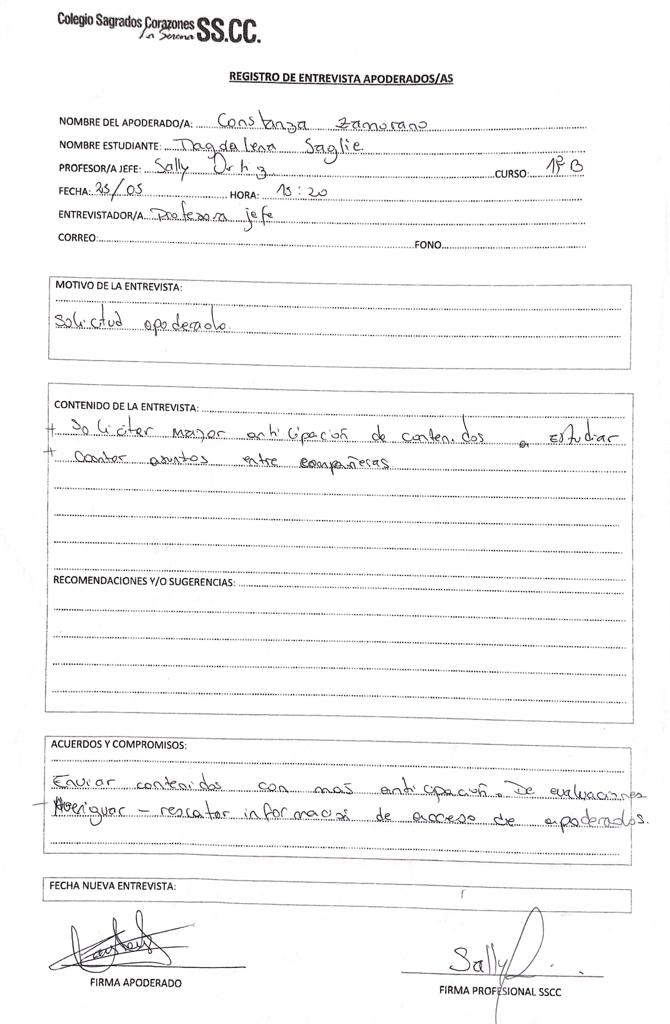 Colegio Sagrados Corazones SS.CC.
La Serena
REGISTRO DE ENTREVISTA APODERADOS/AS
NOMBRE DEL APODERADO/A: Constanza Zamorano
NOMBRE ESTUDIANTE: Magdalena Saglie
PROFESOR/A JEFE: Sally Ortiz CURSO: B
FECHA: 25/05 HORA: 15:20
ENTREVISTADOR/A Profesora jefe
CORREO: FONO
MOTIVO DE LA ENTREVISTA:
Solicitud apoderado.
CONTENIDO DE LA ENTREVISTA:
+ Solicitar mayor anticipación de contenidos a Estudiar
+ Contar asuntos entre compañeras
RECOMENDACIONES Y/O SUGERENCIAS:
ACUERDOS Y COMPROMISOS:
Enviar contenidos con más anticipación. De evaluaciones
- Averiguar - rescatar información de acceso de apoderados.
FECHA NUEVA ENTREVISTA:
Sally
FIRMA APODERADO
FIRMA PROFESIONAL SSCC